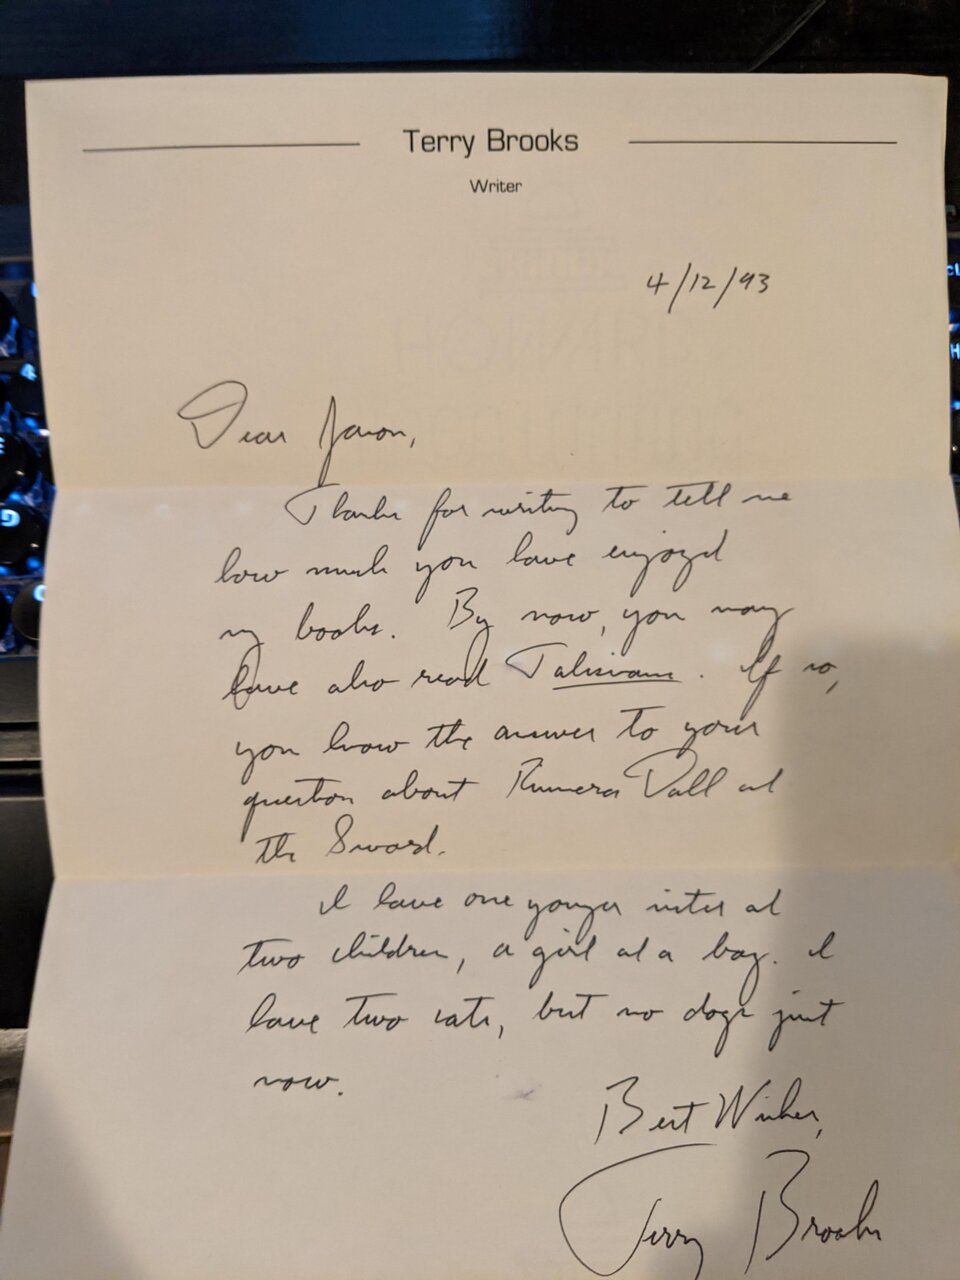 Terry Brooks
Writer
4/12/93
Dear Jason,
Thanks for writing to tell me
how much you have enjoyed
my books. By now, you may
have also read Talismans. If so,
you know the answer to your
question about Rimmer Dall and
the Sword.
I have one younger sister and
two children, a girl and a boy. I
have two cats, but no dogs just
now.
Best Wishes,
Terry Brooks